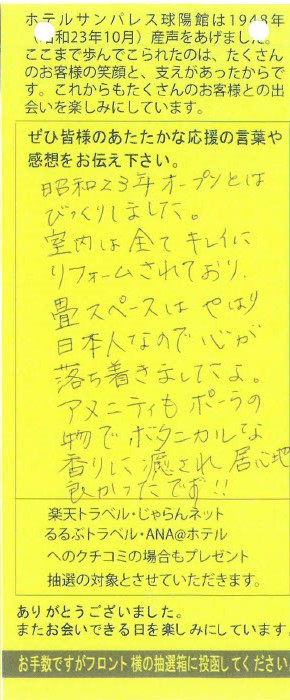 ホテルサンパレス球陽館は1948年
昭和23年10月）産声をあげました。
ここまで歩んでこられたのは、たくさん
のお客様の笑顔と、支えがあったからで
す。これからもたくさんのお客様との出
会いを楽しみにしています。
ぜひ皆様のあたたかな応援の言葉や
感想をお伝え下さい。
昭和23年オープンとは
びっくりしました。
室内は全てキレイに
リフォームされており、
畳スペースはやはり
日本人なので心が
落ち着きましたよ。
アメニティもポーラの
物でボタニカルな
香りに癒され居心地
良かったです!!
楽天トラベル・じゃらんネット
るるぶトラベル・ANA@ホテル
へのクチコミの場合もプレゼント
抽選の対象とさせていただきます。
ありがとうございました。
またお会いできる日を楽しみにしています。
お手数ですがフロント横の抽選箱に投函してください。